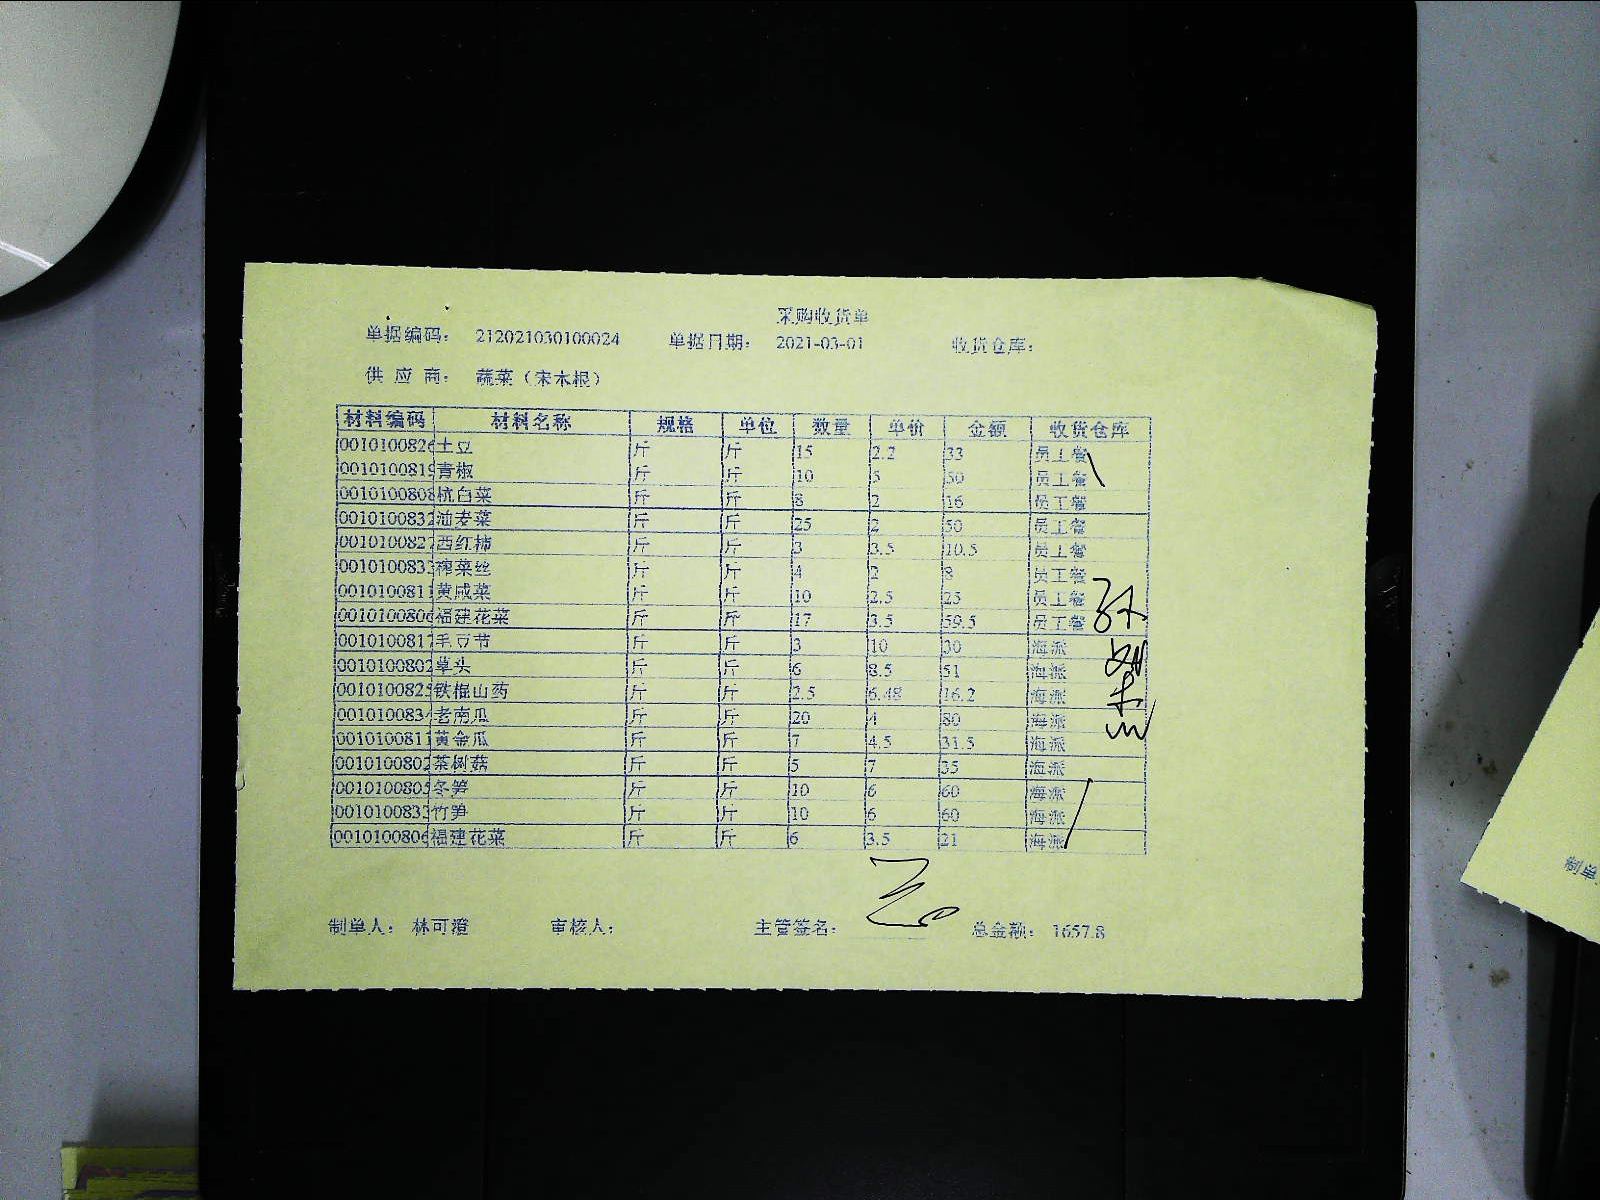 采购收货单
单据编码： 212021030100024 单据日期： 2021-03-01 收货仓库：
供 应 商： 蔬菜（宋木根）
材料编码 材料名称 规格 单位 数量 单价 金额 收货仓库
0010100826 土豆 斤 斤 15 2.2 33 员工餐
0010100819 青椒 斤 斤 10 5 50 员工餐
0010100808 杭白菜 斤 斤 8 2 16 员工餐
0010100832 油麦菜 斤 斤 25 2 50 员工餐
0010100827 西红柿 斤 斤 3 3.5 10.5 员工餐
001010083 榨菜丝 斤 斤 4 2 8 员工餐
001010081 黄咸菜 斤 斤 10 2.5 25 员工餐
0010100806 福建花菜 斤 斤 17 3.5 59.5 员工餐
001010081 毛豆节 斤 斤 3 10 30 海派
0010100802 草头 斤 斤 6 8.5 51 海派
001010082 铁棍山药 斤 斤 2.5 6.48 16.2 海派
001010083 老南瓜 斤 斤 20 4 80 海派
001010081 黄金瓜 斤 斤 7 4.5 31.5 海派
0010100802 茶树菇 斤 斤 5 7 35 海派
001010080 冬笋 斤 斤 10 6 60 海派
001010083 竹笋 斤 斤 10 6 60 海派
0010100806 福建花菜 斤 斤 6 3.5 21 海派
制单人： 林可澄 审核人： 主管签名： 总金额： 1657.8